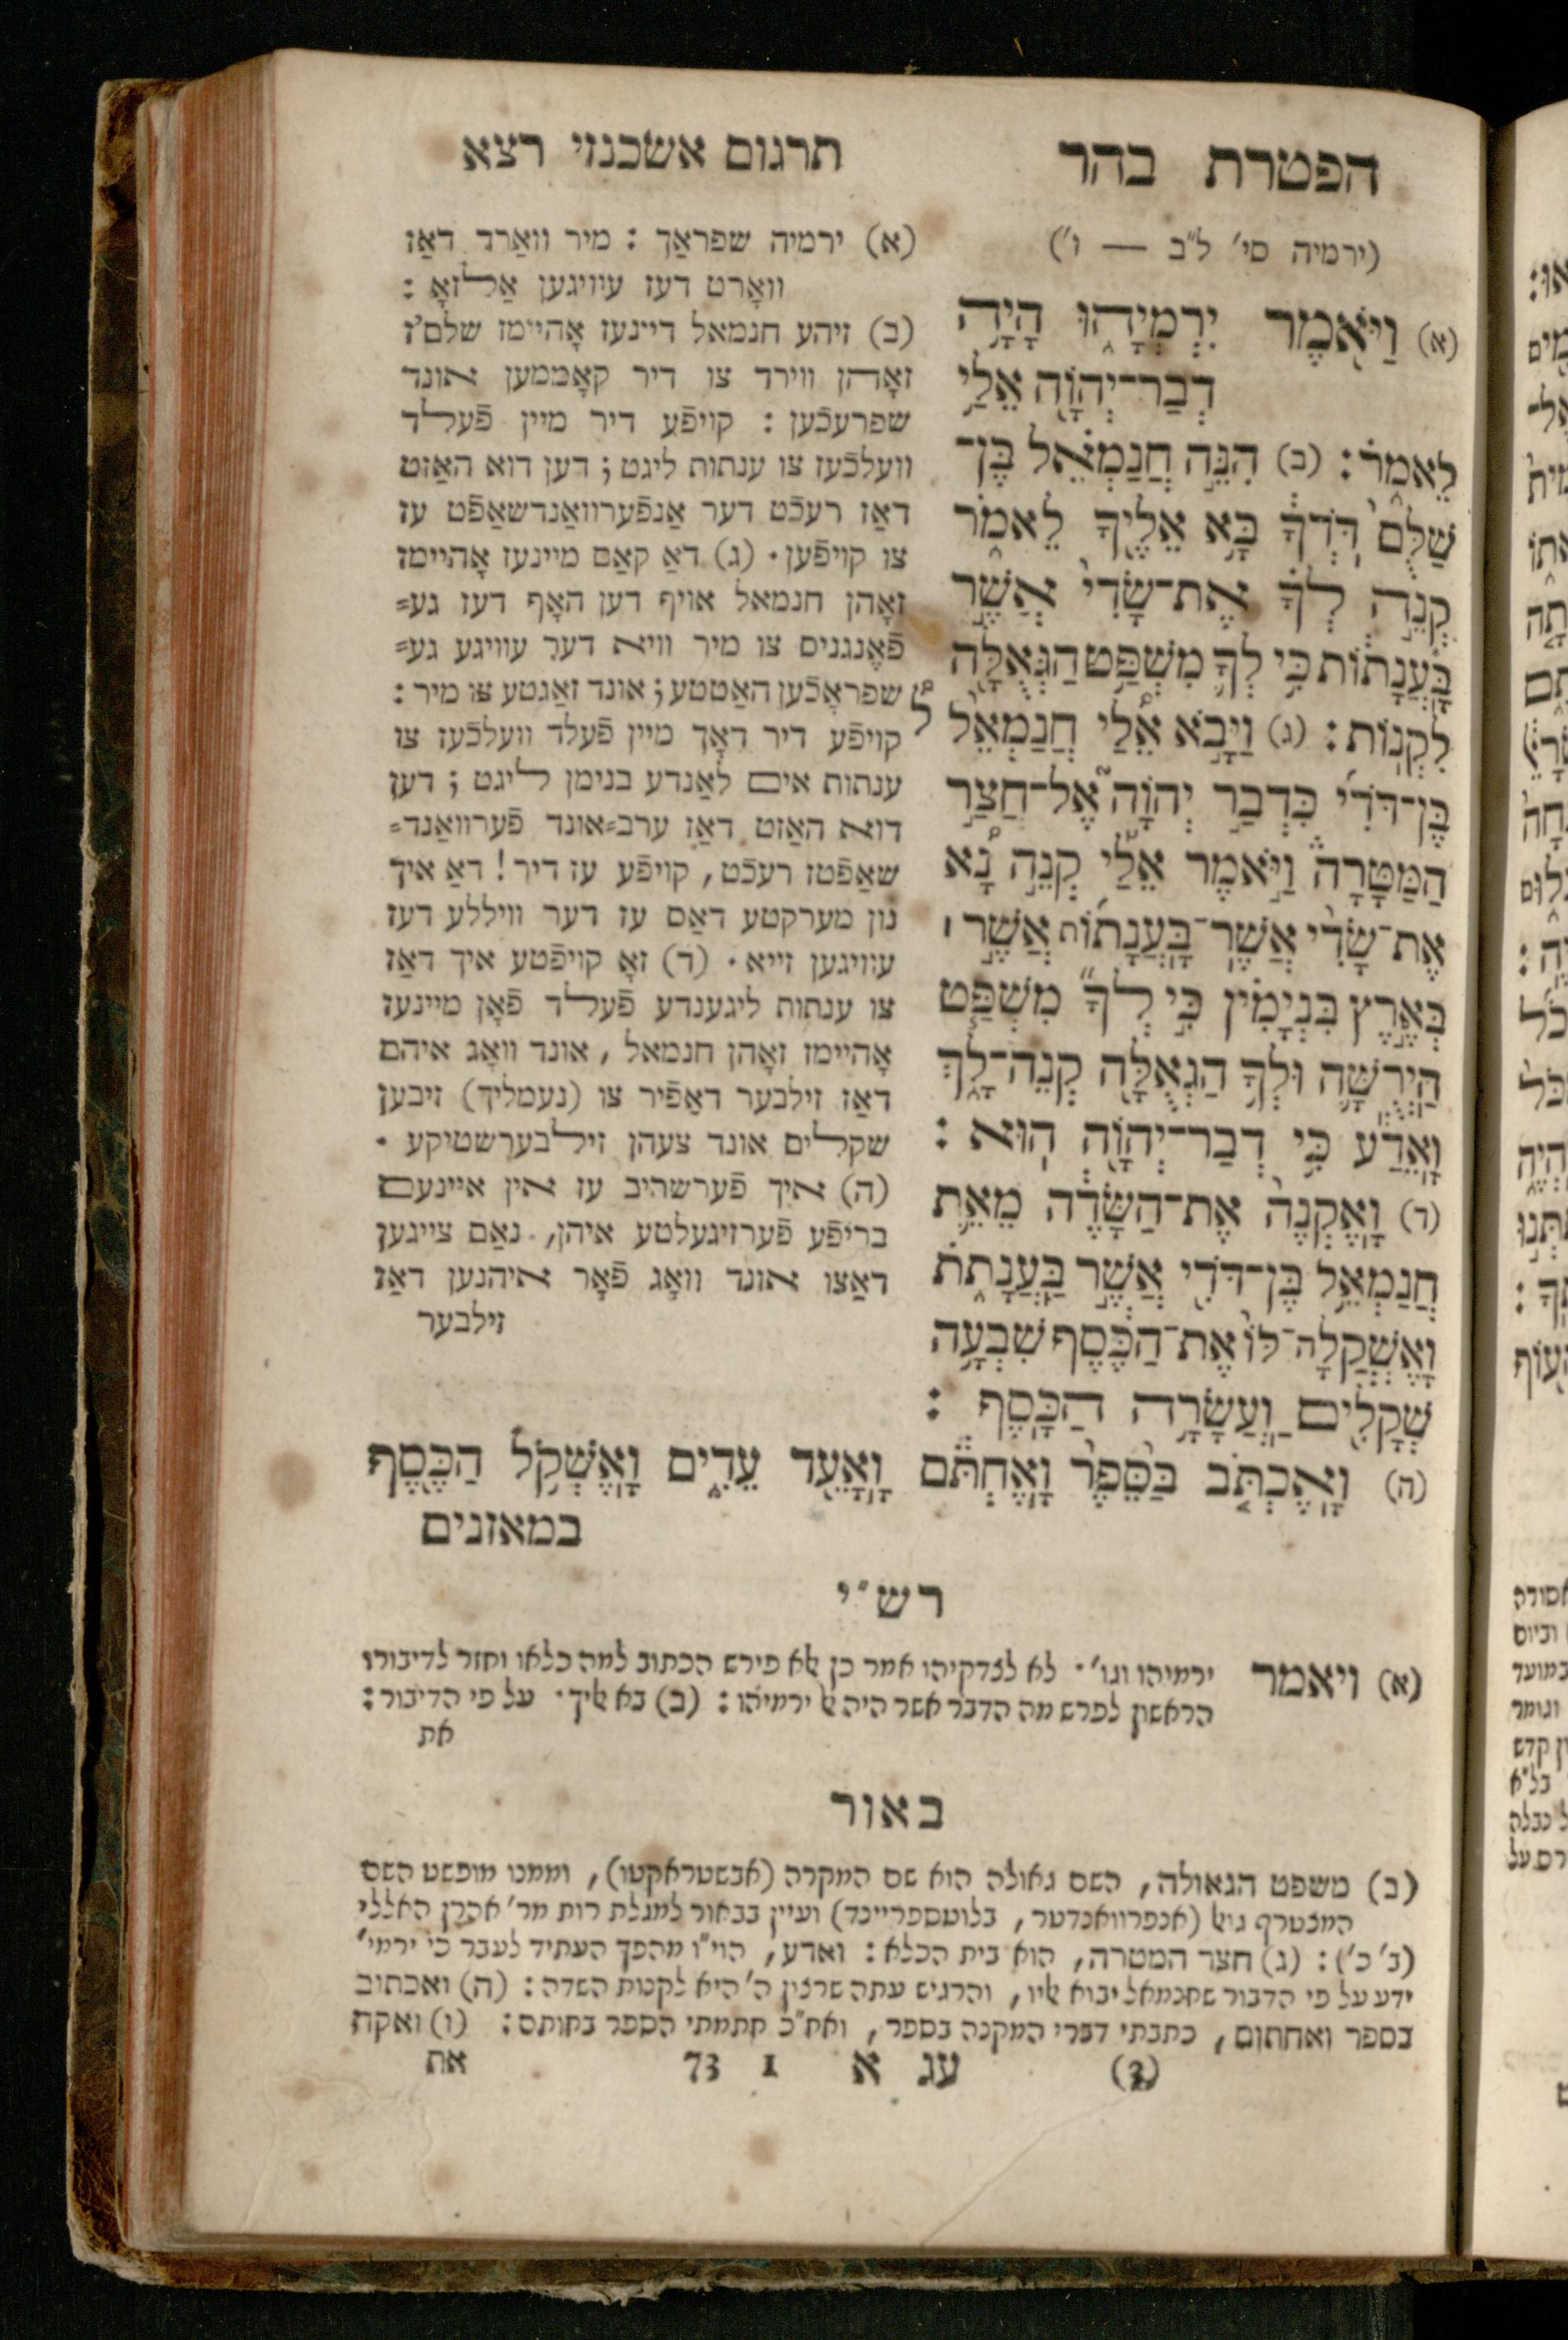 הפטרת בהר
תרגום אשכנזי רצא
(ירמיה סי׳ ל״ב — ו׳)
(א) וַיֹּאמֶר יִרְמְיָהוּ הָיָה
דְבַר־יְהוָֹה אֵלַי
לֵאמֹר: (ב) הִנֵּה חֲנַמְאֵל בֶּן־
שַׁלֻּם דֹּדְךָ בָּא אֵלֶיךָ לֵאמֹר
קְנֵה לְךָ אֶת־שָׂדִי אֲשֶׁר
בַּעֲנָתוֹת כִּי לְךָ מִשְׁפַּט הַגְּאֻלָּה
לִקְנוֹת: (ג) וַיָּבֹא אֵלַי חֲנַמְאֵל
בֶּן־דֹּדִי כִּדְבַר יְהוָֹה אֶל־חֲצַר
הַמַּטָּרָה וַיֹּאמֶר אֵלַי קְנֵה נָא
אֶת־שָׂדִי אֲשֶׁר־בַּעֲנָתוֹת אֲשֶׁר ׀
בְּאֶרֶץ בִּנְיָמִין כִּי לְךָ מִשְׁפַּט
הַיְרֻשָּׁה וּלְךָ הַגְאֻלָּה קְנֵה־לָךְ
וָאֵדַע כִּי דְבַר־יְהוָֹה הוּא:
(ד) וָאֶקְנֶה אֶת־הַשָּׂדֶה מֵאֵת
חֲנַמְאֵל בֶּן־דֹּדִי אֲשֶׁר בַּעֲנָתֹת
וָאֶשְׁקֲלָה־לּוֹ אֶת־הַכֶּסֶף שִׁבְעָה
שְׁקָלִים וַעֲשָׂרָה הַכָּסֶף:
(א) ירמיה שפראַך: מיר וואַרד דאַז
וואָרט דעז עיוויגען אַלזאָ:
(ב) זיהע חנמאל דיינעז אָהיימז שלם׳ז
זאָהן ווירד צו דיר קאָממען אונד
שפרעכֿען: קויפֿע דיר מיין פֿעלד
וועלכֿעז צו ענתות ליגט; דען דוא האַזט
דאַז רעכֿט דער אַנפֿערוואַנדשאַפֿט עז
צו קויפֿען. (ג) דאַ קאַם מיינעז אָהיימז
זאָהן חנמאל אויף דען האָף דעז גע=
פֿאֶנגנים צו מיר וויא דער עוויגע גע=
שפראָכֿען האַטטע; אונד זאַגטע צו מיר:
קויפֿע דיר דאָך מיין פֿעלד וועלכֿעז צו
ענתות אים לאַנדע בנימן ליגט; דען
דוא האַזט דאַז ערב=אונד פֿערוואַנד=
שאַפֿטז רעכֿט, קויפֿע עז דיר! דאַ איך
נון מערקטע דאַס עז דער ווילללע דעז
עיוויגען זייא. (ד) זאָ קויפֿטע איך דאַז
צו ענתות ליגענדע פֿעלד פֿאָן מיינעז
אָהיימז זאָהן חנמאל, אונד וואָג איהם
דאַז זילבער דאַפֿיר צו (נעמליך) זיבען
שקלים אונד צעהן זילבערשטיקע.
(ה) איך פֿערשריב עז אין איינעם
בריפֿע פֿערזיגעלטע איהן, נאַם צייגען
דאַצו אונד וואָג פֿאָר איהנען דאַז
זילבער
(ה) וָאֶכְתֹּב בַּסֵּפֶר וָאֶחְתֹּם וָאָעֵד עֵדִים וָאֶשְׁקֹל הַכֶּסֶף
במאזנים
רש״י
(א) ויאמר ירמיהו וגו׳. לא לצדקיהו אמר כן אלא פירש הכתוב למה כלאו וחזר לדיבורו
הראשון לפרש מה הדבר אשר היה אל ירמיהו: (ב) בא אליך. על פי הדיבור:
את
באור
(ב) משפט הגאולה, השם גאולה הוא שם המקרה (אבשטראקטו), וממנו מופשט השם
המצטרף גואל (אנפרוואנדטר, בלוטספריינד) ועיין בבאור למגלת רות מר׳ אהרן האללי
(ב׳ כ׳): (ג) חצר המטרה, הוא בית הכלא: ואדע, הוי״ו מהפך העתיד לעבר כי ירמי׳
ידע על פי הדבור שחנמאל יבוא אליו, והרגיש עתה שרצון ה׳ היא לקנות השדה: (ה) ואכתוב
בספר ואחתום, כתבתי דברי המקנה בספר, ואח״כ חתמתי הספר בחותם: (ו) ואקח
(3) עג א 1 73 את